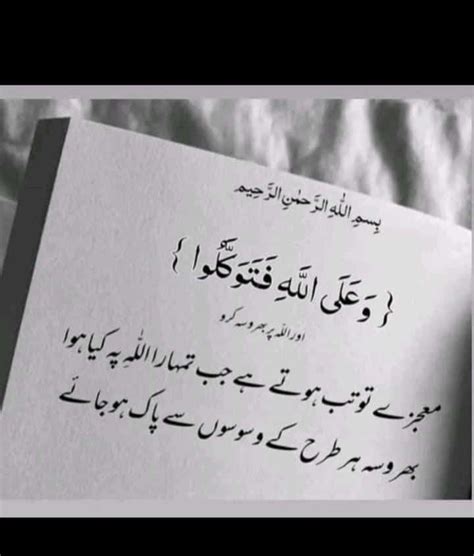 بِسمِ اللهِ الرَّحمٰنِ الرَّحِيم
{ وَعَلَى اللَّهِ فَتَوَكَّلُوا }
اور اللہ پر بھروسہ کرو
معجزے تو تب ہوتے ہے جب تمہارا اللہ پہ کیا ہوا
بھروسہ ہر طرح کے وسوسوں سے پاک ہو جائے